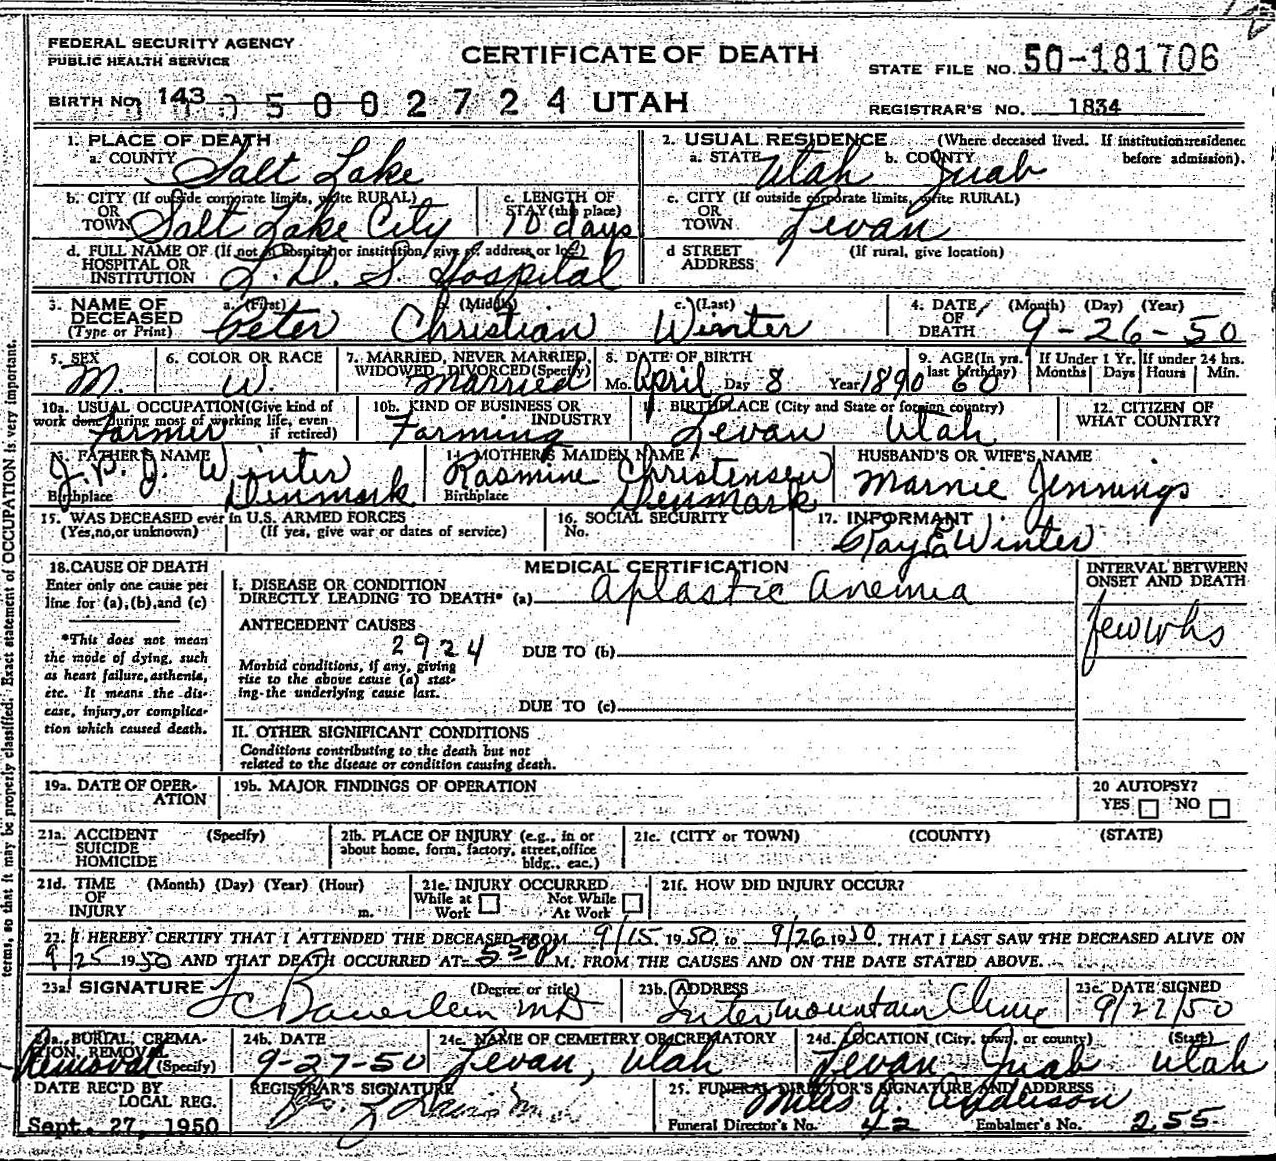 FEDERAL SECURITY AGENCY
PUBLIC HEALTH SERVICE
CERTIFICATE OF DEATH
STATE FILE NO. 50-181706
BIRTH NO. 143
5 0 0 2 7 2 4 UTAH
REGISTRAR'S NO. 1834
1. PLACE OF DEATH
a. COUNTY Salt Lake
2. USUAL RESIDENCE (Where deceased lived. If institution: residence before admission).
a. STATE Utah b. COUNTY Juab
b. CITY (If outside corporate limits, write RURAL) OR TOWN Salt Lake City
c. LENGTH OF STAY (this place) 10 days
c. CITY (If outside corporate limits, write RURAL) OR TOWN Levan
d. FULL NAME OF (If not in hospital or institution, give st. address or loc.) HOSPITAL OR INSTITUTION L. D. S. Hospital
d STREET ADDRESS (If rural, give location)
3. NAME OF DECEASED (Type or Print) a. (First) Peter b. (Middle) Christian c. (Last) Winter
4. DATE OF DEATH (Month) (Day) (Year) 9-26-50
5. SEX M.
6. COLOR OR RACE W.
7. MARRIED, NEVER MARRIED, WIDOWED, DIVORCED (Specify) Married
8. DATE OF BIRTH Mo. April Day 8 Year 1890
9. AGE (In yrs. last birthday) 60
If Under 1 Yr. Months Days
If under 24 hrs. Hours Min.
10a. USUAL OCCUPATION (Give kind of work done during most of working life, even if retired) Farmer
10b. KIND OF BUSINESS OR INDUSTRY Farming
11. BIRTHPLACE (City and State or foreign country) Levan Utah
12. CITIZEN OF WHAT COUNTRY?
13. FATHER'S NAME J. P. J. Winter
Birthplace Denmark
14. MOTHER'S MAIDEN NAME Rasmine Christensen
Birthplace Denmark
HUSBAND'S OR WIFE'S NAME
Marnie Jennings
15. WAS DECEASED ever in U.S. ARMED FORCES
(Yes, no, or unknown) (If yes, give war or dates of service)
16. SOCIAL SECURITY No.
17. INFORMANT Ray E Winter
18. CAUSE OF DEATH
Enter only one cause per line for (a), (b), and (c)
*This does not mean the mode of dying, such as heart failure, asthenia, etc. It means the disease, injury, or complication which caused death.
MEDICAL CERTIFICATION
I. DISEASE OR CONDITION DIRECTLY LEADING TO DEATH* (a) Aplastic anemia
INTERVAL BETWEEN ONSET AND DEATH
few whs
ANTECEDENT CAUSES
2924
Morbid conditions, if any, giving rise to the above cause (a) stating the underlying cause last.
DUE TO (b)
DUE TO (c)
II. OTHER SIGNIFICANT CONDITIONS
Conditions contributing to the death but not related to the disease or condition causing death.
19a. DATE OF OPERATION
19b. MAJOR FINDINGS OF OPERATION
20 AUTOPSY?
YES NO
21a. ACCIDENT SUICIDE HOMICIDE (Specify)
21b. PLACE OF INJURY (e.g., in or about home, form, factory, street, office bldg., eac.)
21c. (CITY or TOWN) (COUNTY) (STATE)
21d. TIME OF INJURY (Month) (Day) (Year) (Hour) m.
21e. INJURY OCCURRED While at Work Not While At Work
21f. HOW DID INJURY OCCUR?
22. I HEREBY CERTIFY THAT I ATTENDED THE DECEASED FROM 9/15 1950 to 9/26 1950, THAT I LAST SAW THE DECEASED ALIVE ON
9/25 1950 AND THAT DEATH OCCURRED AT 5 50 P M. FROM THE CAUSES AND ON THE DATE STATED ABOVE.
23a. SIGNATURE (Degree or title) MD
23b. ADDRESS Intermountain Clinic
23c. DATE SIGNED 9/27/50
24a. BURIAL, CREMATION, REMOVAL (Specify) Removal
24b. DATE 9-27-50
24c. NAME OF CEMETERY OR CREMATORY Levan, Utah
24d. LOCATION (City, town, or county) (State) Levan Juab Utah
DATE REC'D BY LOCAL REG.
Sept. 27, 1950
REGISTRAR'S SIGNATURE
25. FUNERAL DIRECTOR'S SIGNATURE AND ADDRESS
Miles A. Anderson
Funeral Director's No. 42 Embalmer's No. 255
terms, so that it may be properly classified. Exact statement of OCCUPATION is very important.